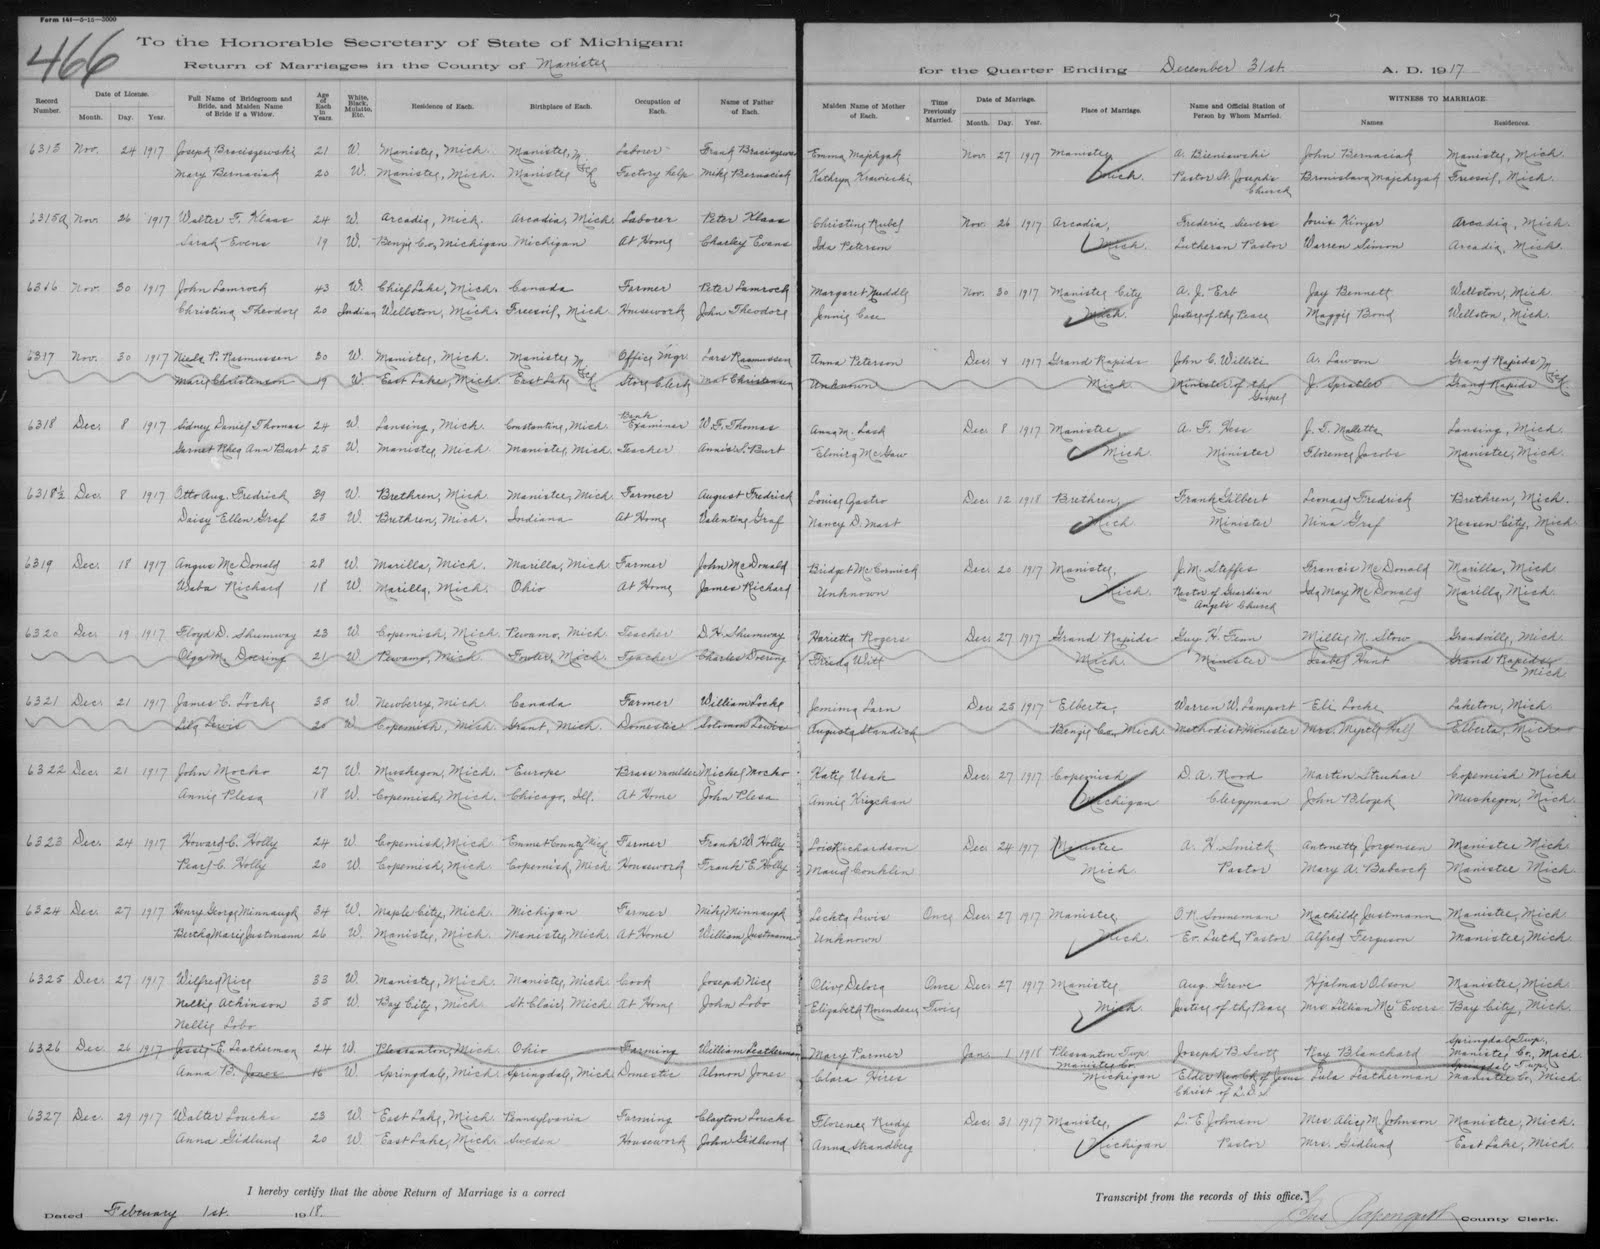 Form 141—5-15-5000
466
To the Honorable Secretary of State of Michigan:
Return of Marriages in the County of Manistee for the Quarter Ending December 31st. A. D. 1917
Record Number. Date of License. Month. Day. Year. Full Name of Bridegroom and Bride, and Maiden Name of Bride if a Widow. Age of Each in Years. White, Black, Mulatto, Etc. Residence of Each. Birthplace of Each. Occupation of Each. Name of Father of Each. Maiden Name of Mother of Each. Time Previously Married. Date of Marriage. Month. Day. Year. Place of Marriage. Name and Official Station of Person by Whom Married. WITNESS TO MARRIAGE. Names Residences.
6315 Nov. 24 1917 Joseph Brociszewski 21 W. Manistee, Mich. Manistee, Mich Laborer Frank Emma Majchzak Nov. 27 1917 Manistee A. Bieniawski John Bernaciak Manistee, Mich.
Mary Bernaciak 20 W. Manistee, Mich. Manistee Factory help Mike Bernaciak Kathryn Krawieski Mich. Pastor St. Josephs Church Bronislava Majchrzak Freesoil, Mich.
6315a Nov. 26 1917 Walter F. Klaas 24 W. Arcadia, Mich. Arcadia, Mich. Laborer Peter Klaas Christine Rubel Nov. 26 1917 Arcadia, Frederic Sievers Louis Kinzer Arcadia, Mich.
Sarah Evens 19 W. Benzie Co, Michigan Michigan At Home Charley Evans Ida Peterson Mich. Lutheran Pastor Warren Simon Arcadia, Mich.
6316 Nov. 30 1917 John Lamrock 43 W. Chief Lake, Mich. Canada Farmer Peter Lamrock Margaret Huddle Nov. 30 1917 Manistee City A. J. Erb Jay Bennett Wellston, Mich.
Christina Theodore 20 Indian Wellston, Mich. Freesoil, Mich. Housework John Theodore Jennie Case Mich. Justice of the Peace Maggie Bond Wellston, Mich.
6317 Nov. 30 1917 Niels P. Rasmussen 30 W. Manistee, Mich. Manistee Mich Office Mgr. Lars Rasmussen Anna Peterson Dec. 4 1917 Grand Rapids John C. Willits A. Lawson Grand Rapids Mich.
Marie Christenson 19 W. East Lake, Mich. East Lake Store Clerk Mat Christensen Unknown Mich. Minister of the Gospel J. Spratler Grand Rapids
6318 Dec. 8 1917 Sidney Daniel Thomas 24 W. Lansing, Mich. Constantine, Mich. Bank Examiner W. F. Thomas Anna M. Lask Dec. 8 1917 Manistee A. F. Hess J. T. Mallette Lansing, Mich.
Garnet Rhea Ann Burt 25 W. Manistee, Mich. Manistee, Mich. Teacher Annias S. Burt Elmira McGaw Mich. Minister Florence Jacobs Manistee, Mich.
6318½ Dec. 8 1917 Otto Aug. Fredrick 39 W. Brethren, Mich. Manistee, Mich. Farmer August Fredrick Louise Gastro Dec. 12 1918 Brethren, Frank Gilbert Leonard Fredrick Brethren, Mich.
Daisy Ellen Graf 23 W. Brethren, Mich. Indiana At Home Valentine Graf Nancy D. Mast Mich Minister Nina Graf Nessen City, Mich.
6319 Dec. 18 1917 Angus McDonald 28 W. Marilla, Mich. Marilla, Mich. Farmer John McDonald Bridget McCormick Dec. 20 1917 Manistee, J. M. Steffes Francis McDonald Marilla, Mich
Waba Richard 18 W. Marilla, Mich. Ohio At Home James Richard Unknown Mich. Rector of Guardian Angels Church Ida May McDonald Marilla, Mich.
6320 Dec. 19 1917 Floyd D. Shumway 23 W. Copemish, Mich. Pewamo, Mich. Teacher D. H. Shumway Harietta Rogers Dec. 27 1917 Grand Rapids Guy H. Fenn Millie M. Stow Grandville, Mich.
Olga M. Doering 21 W. Pewamo, Mich. Fowler, Mich. Teacher Charles Doering Frieda Witt Mich. Minister Isabel Hunt Grand Rapids, Mich.
6321 Dec. 21 1917 James C. Locke 35 W. Newberry, Mich. Canada Farmer William Locke Jemima Larn Dec. 25 1917 Elberta, Warren W. Lamport Eli Locke Laketon, Mich.
Lila Lewis 20 W. Copemish, Mich. Grant, Mich. Domestic Solomon Lewis Augusta Standish Benzie Co, Mich. Methodist Minister Mrs. Myrtle Hall Elberta, Mich.
6322 Dec. 21 1917 John Mocho 27 W. Muskegon, Mich. Europe Brass moulder Michel Mocho Katie Usak Dec. 27 1917 Copemish D. A. Rood Martin Struhar Copemish Mich
Annie Plesa 18 W. Copemish, Mich. Chicago, Ill. At Home John Plesa Annie Krizchan Michigan Clergyman John Klopek Muskegon, Mich.
6323 Dec. 24 1917 Howard C. Holly 24 W. Copemish, Mich. Emmet County Mich Farmer Frank W. Holly Lois Richardson Dec. 24 1917 Manistee A. H. Smith Antonette Jorgensen Manistee Mich
Pearl C. Holly 20 W. Copemish, Mich. Copemish, Mich. Housework Frank E. Holly Maud Conklin Mich. Pastor Mary A. Babcock Manistee Mich
6324 Dec. 27 1917 Henry George Minnaugh 34 W. Maple City, Mich. Michigan Farmer Mike Minnaugh Lochta Lewis Once Dec. 27 1917 Manistee, O. R. Sonneman Mathilda Justmann Manistee, Mich.
Bertha Marie Justmann 26 W. Manistee, Mich. Manistee, Mich. At Home William Justmann Unknown Mich. Ev. Luth. Pastor Alfred Ferguson Manistee, Mich.
6325 Dec. 27 1917 Wilfred Nice 33 W. Manistee, Mich. Manistee, Mich. Cook Joseph Nice Olive Delora Once Dec. 27 1917 Manistee Aug. Greve Hjalmar Olson Manistee, Mich.
Nellie Atkinson 35 W. Bay City, Mich. St Clair, Mich. At Home John Lobo Elizabeth Rorundeau Twice Mich. Justice of the Peace Mrs Lillian McEvers Bay City, Mich.
Nellie Lobo
6326 Dec. 26 1917 Jessie E. Leatherman 24 W. Pleasanton, Mich. Ohio Farming William Leatherman Mary Parmer Jan. 1 1918 Pleasanton Twp. Manistee Co. Joseph B. Scott Ray Blanchard Springdale Twp. Manistee Co., Mich
Anna B. Jones 16 W. Springdale, Mich. Springdale, Mich. Domestic Almon Jones Clara Hires Michigan Elder Reo. Ch. of Jesus Christ of L.D.S. Lula Leatherman Springdale Twp. Manistee Co, Mich
6327 Dec. 29 1917 Walter Loucks 23 W. East Lake, Mich. Pennsylvania Farming Clayton Loucks Florence Rudy Dec. 31 1917 Manistee, L. E. Johnson Mrs. Alice M. Johnson Manistee, Mich.
Anna Gidlund 20 W. East Lake, Mich. Sweden Housework John Gidlund Anna Strandberg Michigan Pastor Mrs. Gidlund East Lake, Mich.
I hereby certify that the above Return of Marriage is a correct Transcript from the records of this office.
Dated February 1st. 1918. County Clerk.